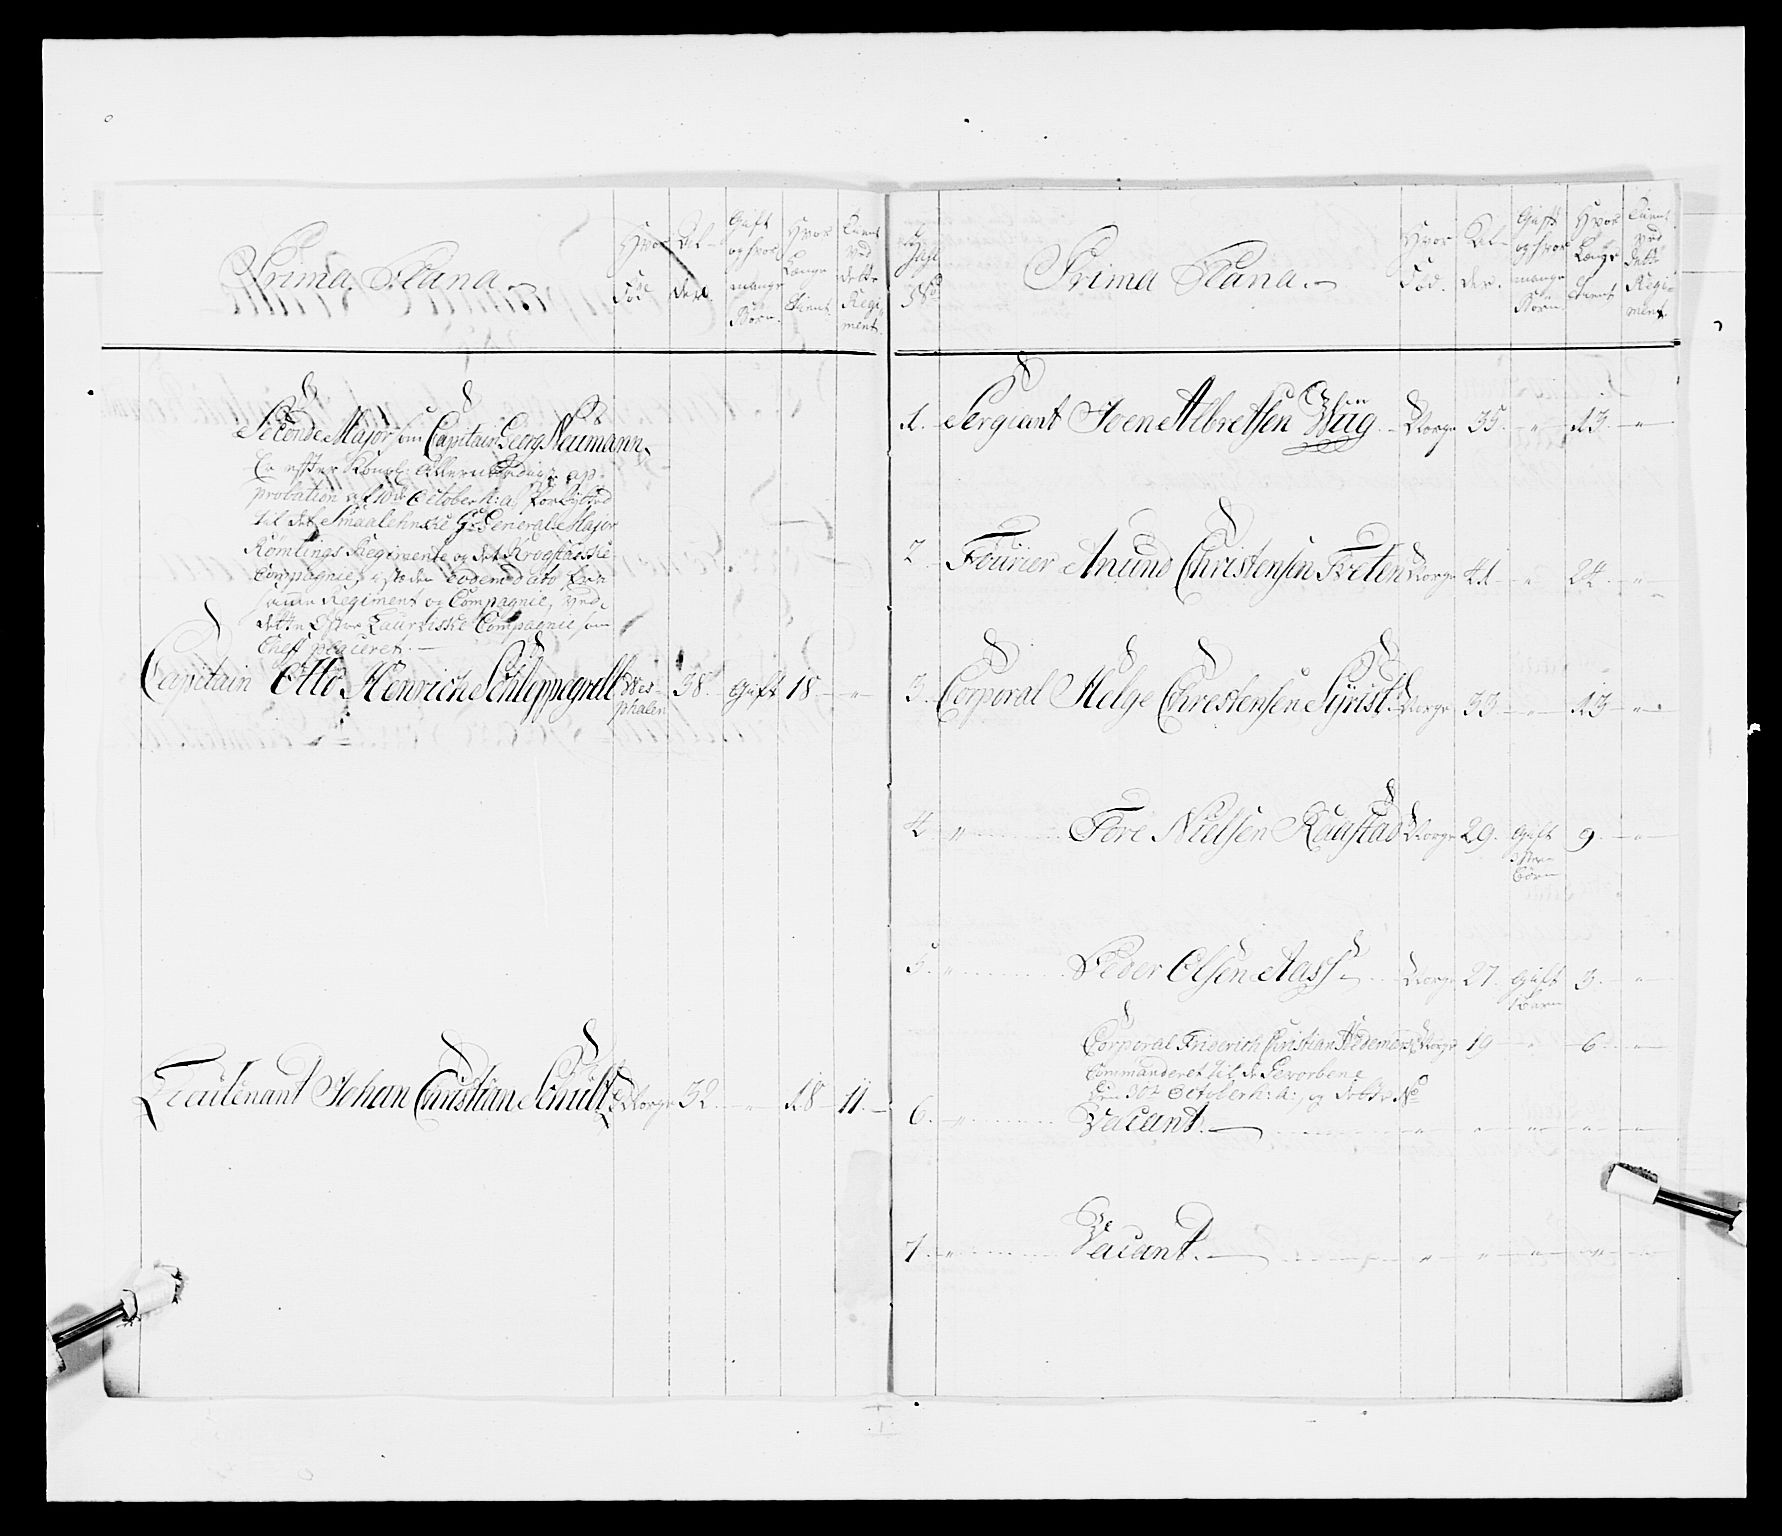 Prima Plana.
Hvor
Fød.
Al-
der.
Gift
og hvor
mange
Børn.
Hvor
Længe
Tient.
Tient
ved
dette
Regi-
ment.
Seconde Major som Capitain Georg Neumann
Er efter Kongl: Allernaadigste ap-
probation af 10de October h: a: forbyttet
til det Smaalehnske Gr: General Major
Rømlings Regimente og det Krogstadske
Compagnie, i steden eodem dato fra
samme Regiment og Compagnie, ved
dette Øster Laurviske Compagnie som
Chef placeret.
Capitain Otto Henrich Schleppegrell Wes- 38. Gift 18 "
phalen
Lieutenant Johan Christian Schultz Norge 32. " 18 11.
No
Prima Plana.
Hvor
Fød.
Al-
der.
Gift
og hvor
mange
Børn.
Hvor
Længe
Tient
Tient
ved
dette
Regi-
ment.
1. Sergeant Joen Albretsen Wiig Norge 35. " 13. "
2. Fourier Anund Christensen Tveten Norge 41 " 24. "
3. Corporal Helge Christensen Norge 33 " 13 "
4. " Tore Nielsen Raastad Norge 29. Gift 9. "
Børn
5. " Peder Olsen Aass Norge 27 Gift 3. "
1 Barn
Corporal Friderich Christian Hedemark Norge 19 " 6. "
Commanderet til de Gevorbene
den 30te October h: a:, og dette No
6. " Vacant. " " " " "
7. " Vacant. " " " " "